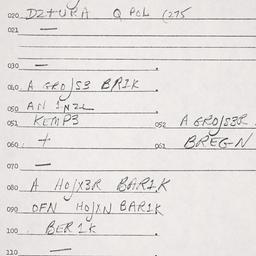 020 DZTURA Q POL (275
021 —
030 —
040 A GROJS3 BR1K
050 AN 1NZL
051 KEMP3 052 A GROJS3R
060 + 061 BREGN
070 —
080 A HOJX3R BAR1K
090 OFN HOJXN BAR1K
100 BER1K
110 —